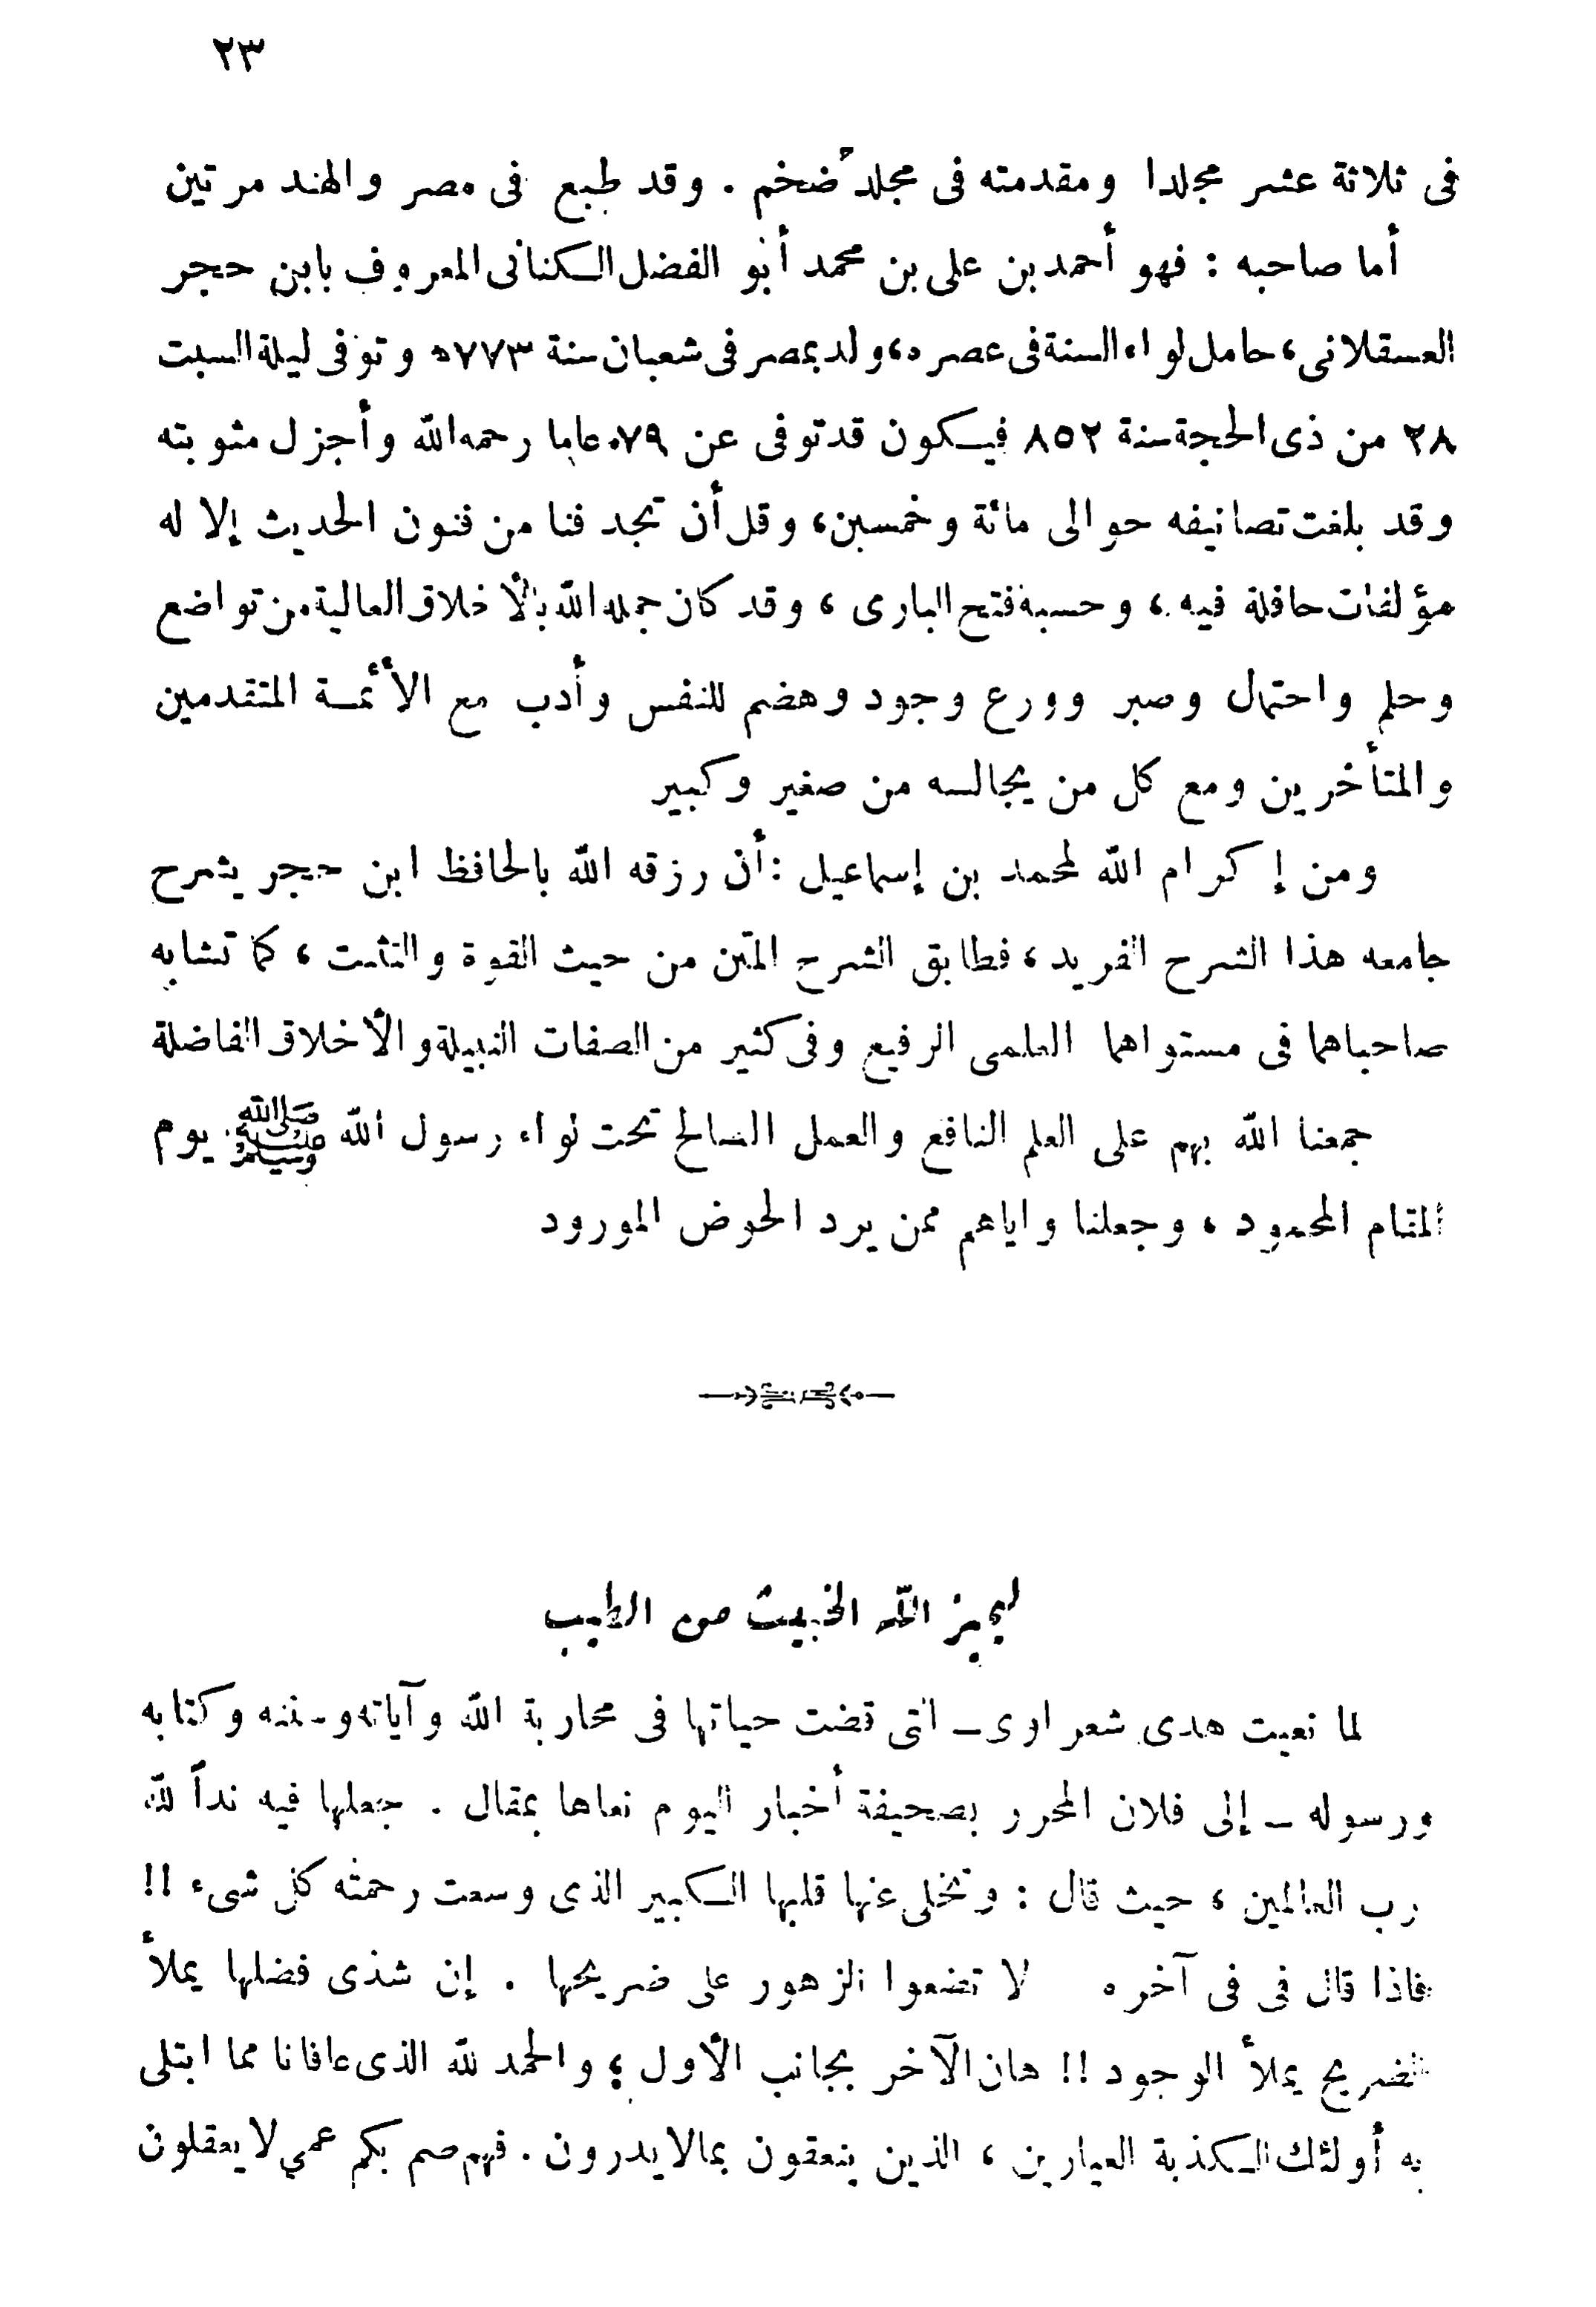 ٢٣
فى ثلاثة عشر مجلدا ومقدمته فى مجلد ضخم . وقد طبع فى مصر والهند مرتين
أما صاحبه : فهو أحمد بن على بن محمد أبو الفضل الكنانى المعروف بابن حجر
العسقلانى ، حامل لواء السنة فى عصره ، ولد بمصر فى شعبان سنة ٧٧٣ه وتوفى ليلة السبت
٢٨ من ذى الحجة سنة ٨٥٢ فيكون قد توفى عن ٧٩ عاما رحمه الله وأجزل مثوبته
وقد بلغت تصانيفه حوالى مائة وخمسين ، وقل أن تجد فنا من فنون الحديث إلا له
مؤلفات حافلة فيه ، وحسبه فتح البارى ، وقد كان جمله الله بالأخلاق العالية من تواضع
وحلم واحتمال وصبر وورع وجود وهضم للنفس وأدب مع الأئمة المتقدمين
والمتأخرين ومع كل من يجالسه من صغير وكبير
ومن إكرام الله لمحمد بن إسماعيل : أن رزقه الله بالحافظ ابن حجر يشرح
جامعه هذا الشرح الفريد ، فطابق الشرح المتن من حيث القوة والتثبت ، كما تشابه
صاحباهما فى مستواهما العلمى الرفيع وفى كثير من الصفات النبيلة والأخلاق الفاضلة
جمعنا الله بهم على العلم النافع والعمل الصالح تحت لواء رسول الله ﷺ يوم
المقام المحمود ، وجعلنا واياهم ممن يرد الحوض المورود
ليميز الله الخبيث من الطيب
لما نعيت هدى شعراوى ـ التى قضت حياتها فى محاربة الله وآياته وسننه وكتابه
ورسوله ـ إلى فلان المحرر بصحيفة أخبار اليوم نعاها بمقال . جعلها فيه نداً لله
رب العالمين ، حيث قال : وتخلى عنها قلبها الكبير الذى وسعت رحمته كل شىء !!
فاذا قال فى فى آخره لا تضعوا الزهور على ضريحها . إن شذى فضلها يملأ
الضريح يملأ الوجود !! هان الآخر بجانب الأول ؛ والحمد لله الذى عافانا مما ابتلى
به أولئك الكذبة العيارين ، الذين ينعقون بمالا يدرون . فهم صم بكم عمي لا يعقلون